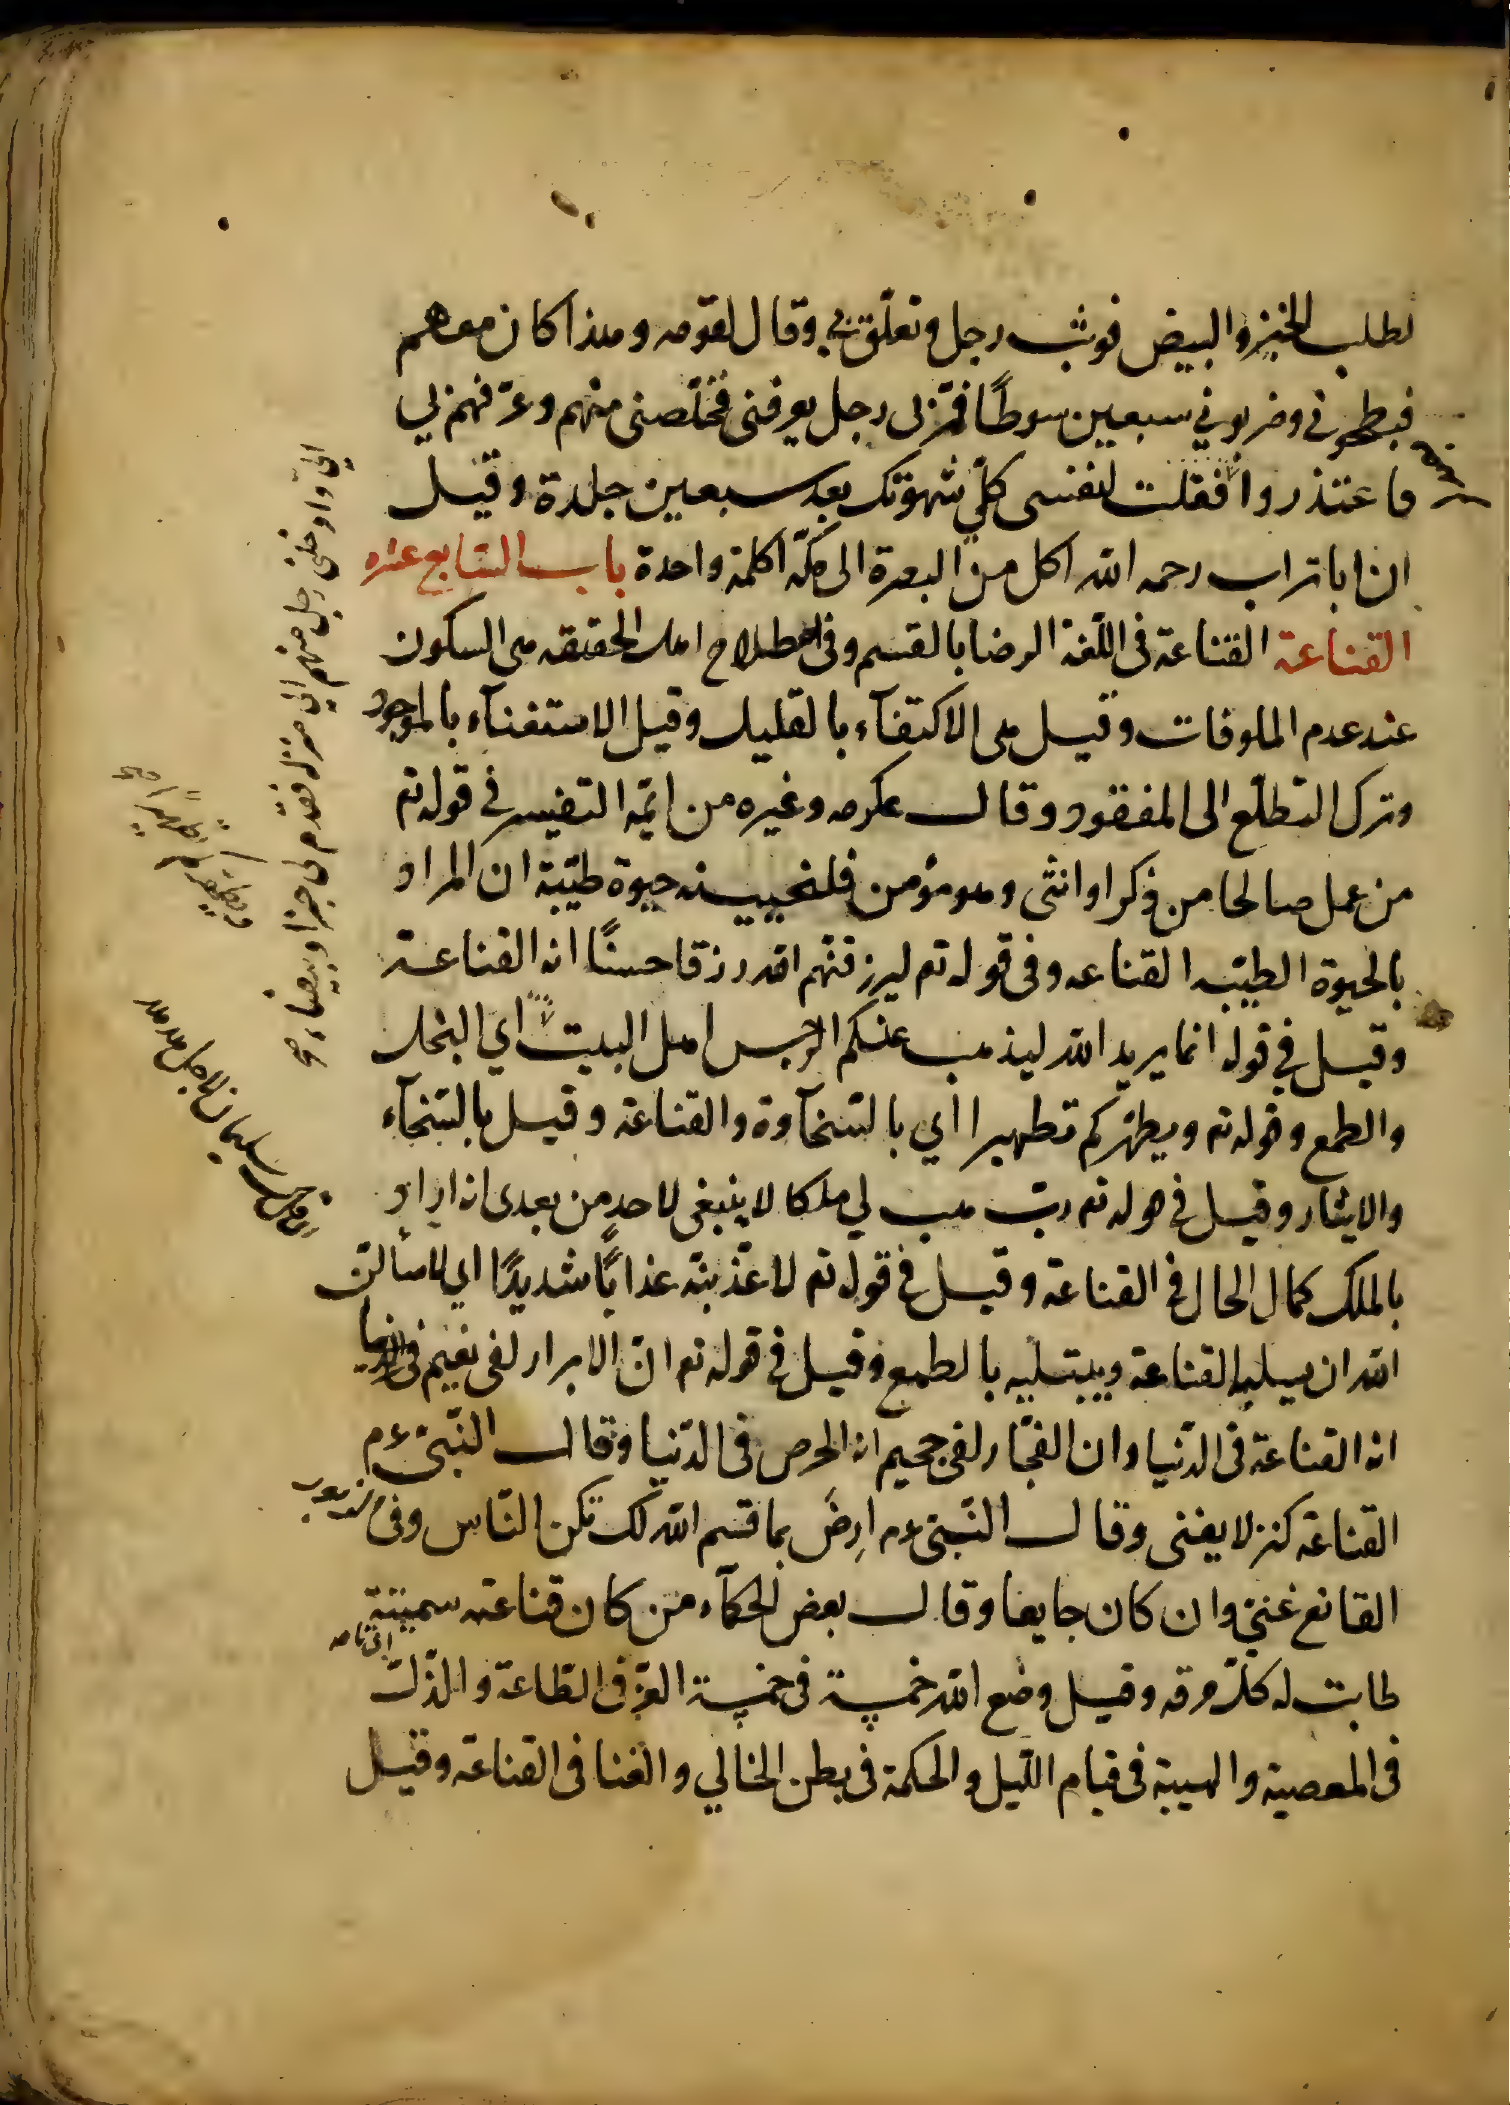 لطلب الخبز والبيض فوثب رجل وتعلّق بي وقال لقومه وهذا كان معهم
فبطحوني وضربوني سبعين سوطًا فمرّ بى رجل يعرفنى فخلّصنى منهم وعرّفهم لي
فاعتذروا فقلت لنفسى كلّي شهوتك بعد سبعين جلدة وقيل
ان ابا تراب رحمه الله اكل من البصرة الى مكّة اكلة واحدة باب السّابع عشر
القناعة القناعة فى اللّغة الرضا بالقسم وفى اصطلاح اهل الحقيقه هى السكون
عند عدم المألوفات وقيل هى الاكتفآء بالقليل وقيل الاستغنآء بالموجود
وترك التطلّع الى المفقود وقال عكرمه وغيره من ائمّة التفسير في قوله تع
من عمل صالحا من ذكر او انثى وهو مؤمن فلنحيينه حيوة طيّبة ان المراد
بالحيوة الطيّبه القناعه وفى قوله تع ليرزقنهم الله رزقا حسنًا انه القناعة
وقيل في قوله انما يريد الله ليذهب عنكم الرجس اهل البيت اي البخل
والطمع وقوله تع ويطهّركم تطهيرا اي بالسّخآوة والقناعة وقيل بالسّخآء
والايثار وقيل في قوله تع ربّ هب لي ملكا لا ينبغى لاحد من بعدى انه اراد
بالملك كمال الحال في القناعة وقيل في قوله تع لاعذّبنّه عذابًا شديدًا اي لاسألنّ
الله ان يسلبه القناعة ويبتليه بالطمع وقيل في قوله تع انّ الابرار لفى نعيم فى الدنيا
انه القناعة فى الدّنيا وان الفجّار لفى جحيم انه الحرص فى الدّنيا وقال النّبىّ عم
القناعة كنز لا يفنى وقال النّبىّ عم ارضَ بما قسم الله لك تكن النّاس وفى الزبور
القانع غنيّ وان كان جايعا وقال بعض الحكمآء من كان قناعته سمينة
طابت له كلّ مرقه وقيل وضع الله خمسة فى خمسة العزّ فى الطّاعة والذّلّ
فى المعصية والهيبة فى قيام اللّيل والحكمة فى بطن الخالي والغنا فى القناعة وقيل
اليّ وادخلنى رجل منهم الي منزله فقدم لى خبزا وبيضا صح
ويطهّركم تطهيرًا